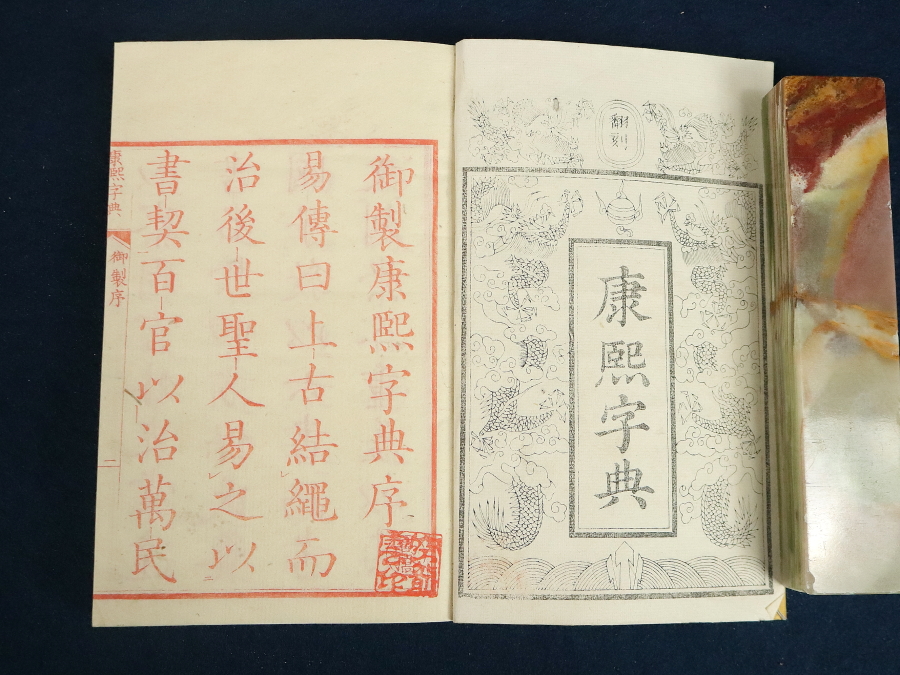 翻刻
康熙字典
御製康熙字典序
易傳曰上古結繩而
治後世聖人易之以
書契百官以治萬民
康熙字典
御製序
一